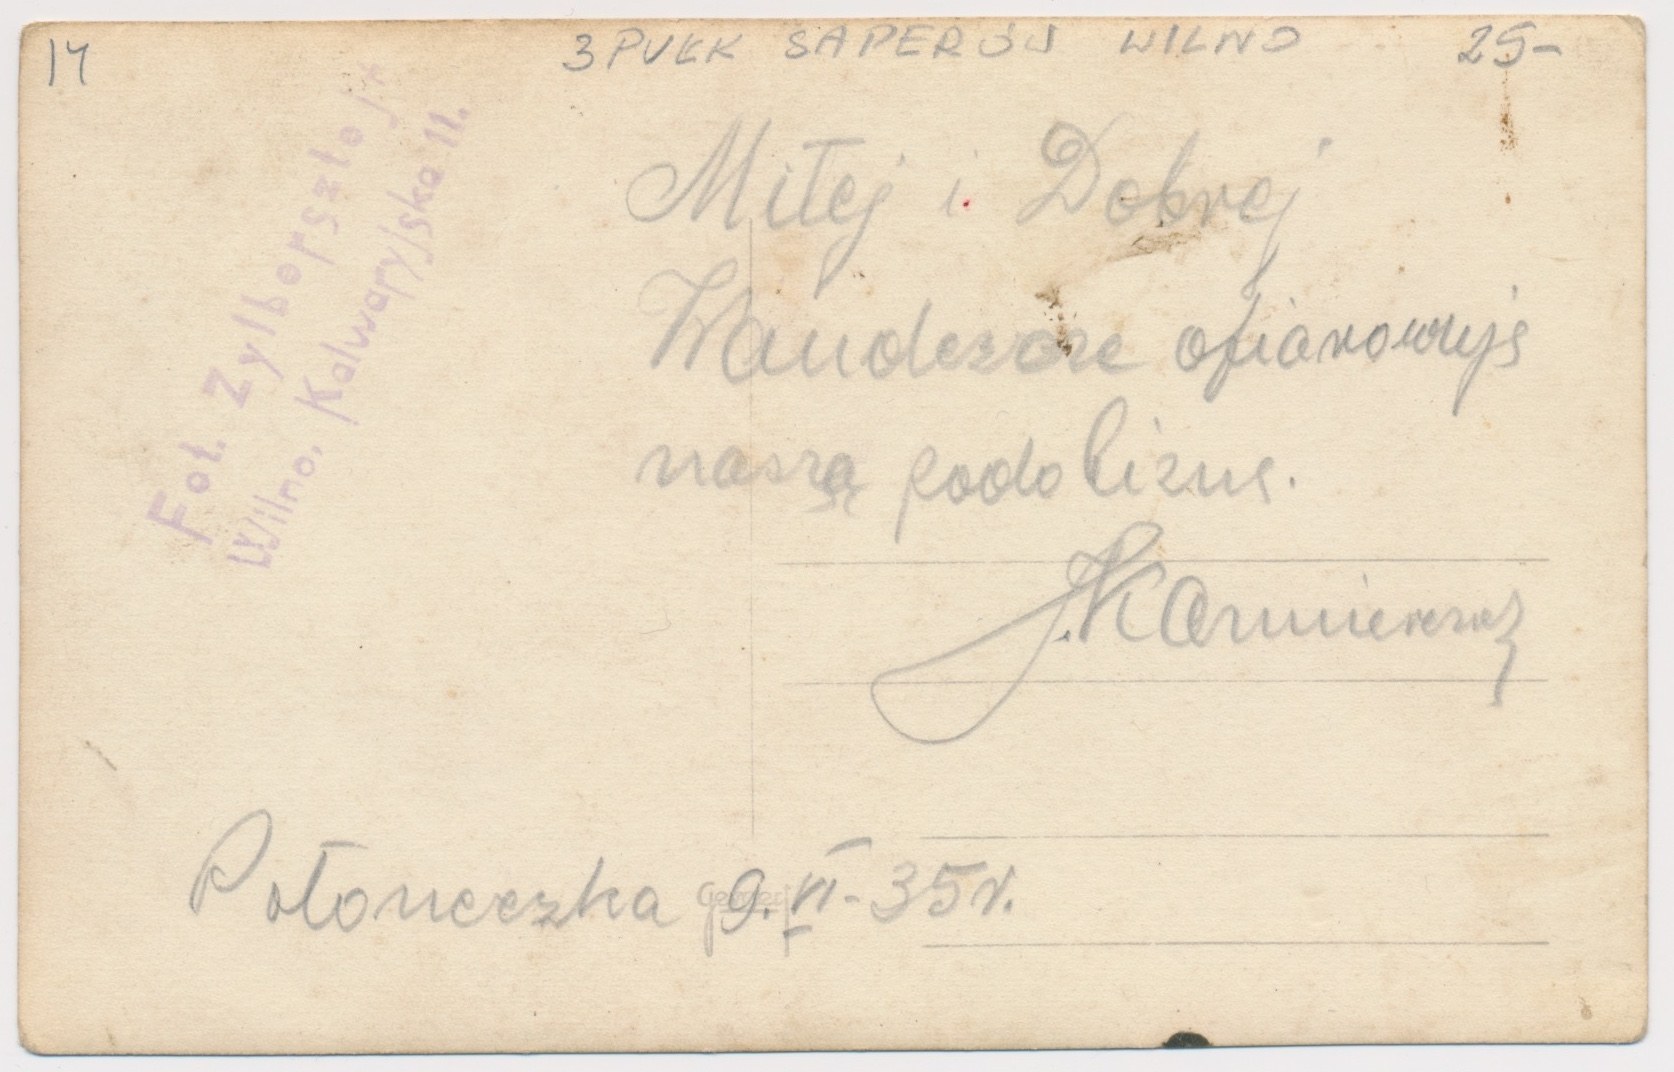 14 3 PUŁK SAPERÓW WILNO 25-
Fot. Zylbersztejn
Wilno, Kalwaryjska 11.
Miłej i Dobrej
Wandeczce ofiarowuję
naszą podobiznę.
Połoneczka 9.VI-35r.